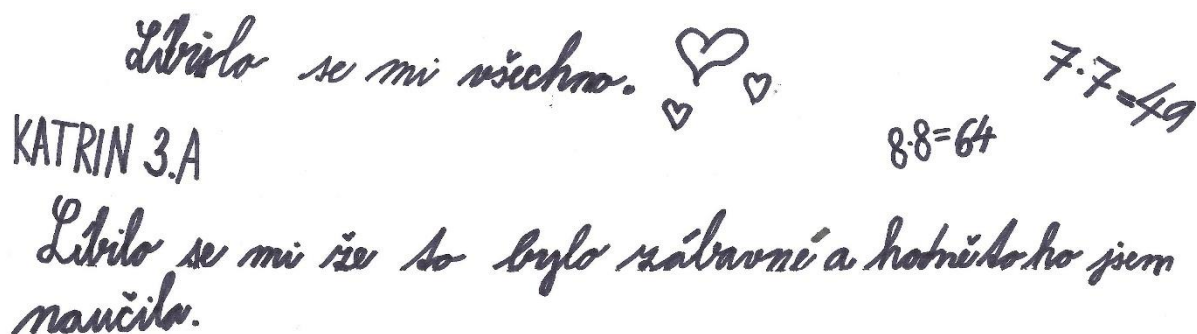 Líbilo se mi všechno.
7·7=49
8·8=64
KATRIN 3.A
Líbilo se mi že to bylo zábavné a hodně toho jsem
naučila.